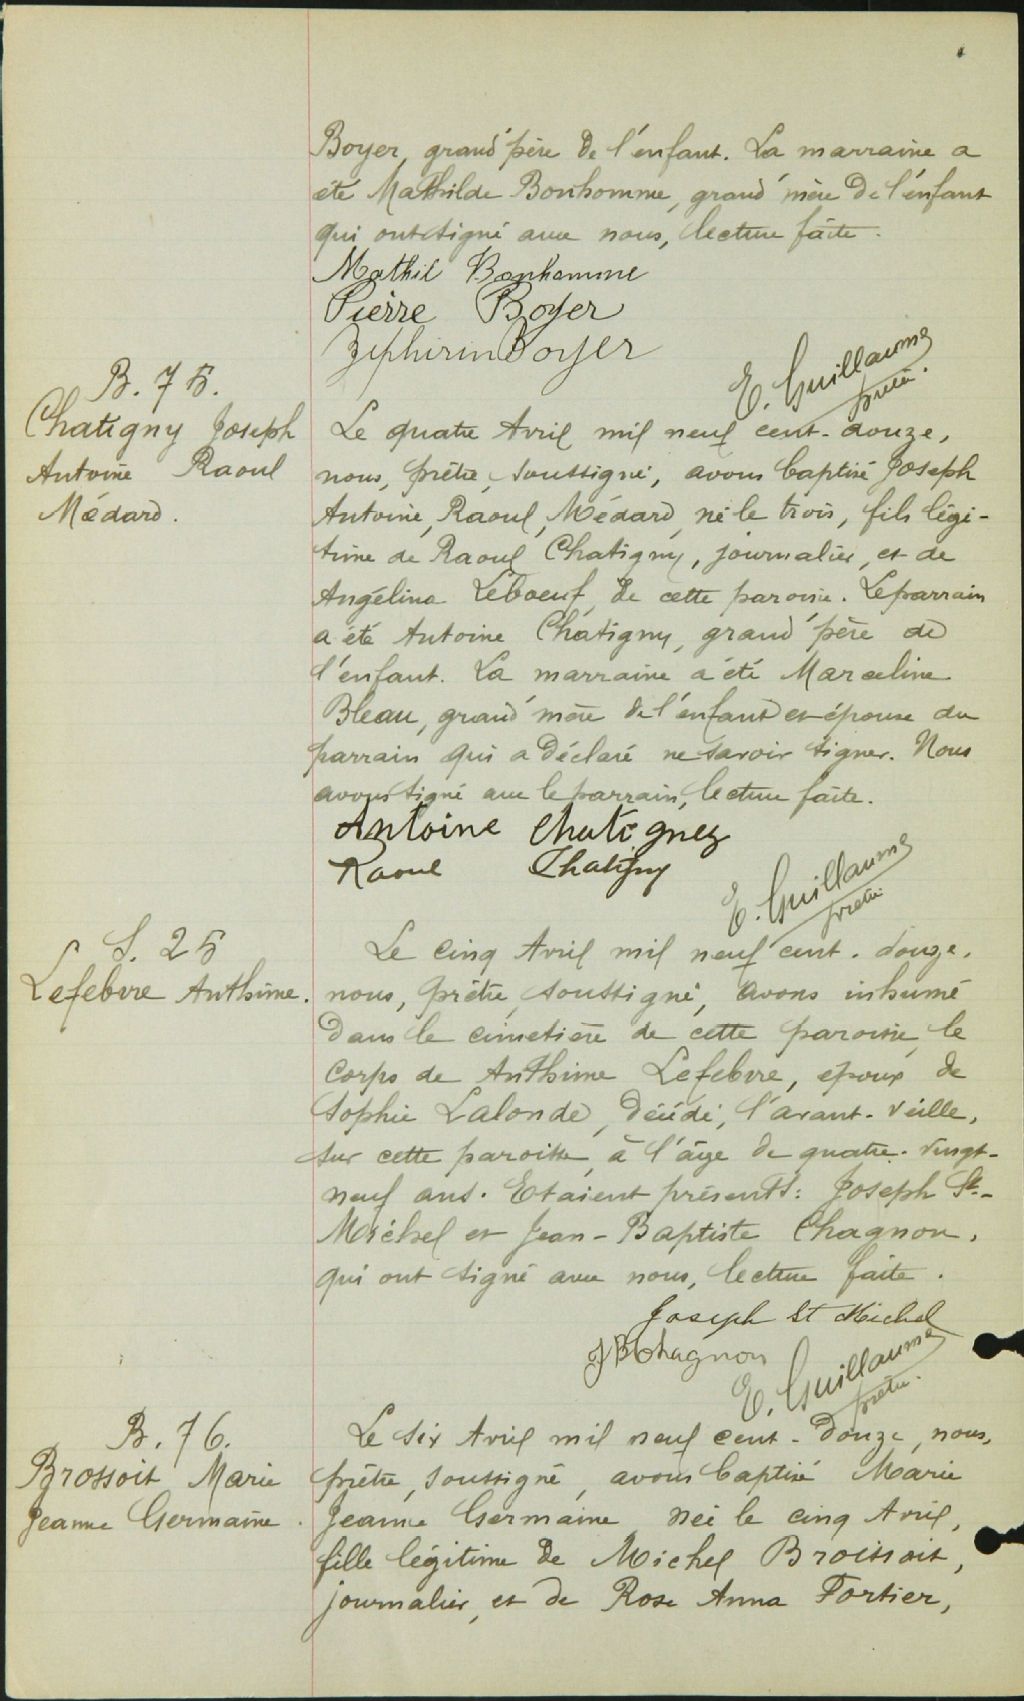 Boyer, grand'père de l'enfant. La marraine a
été Mathilde Bonhomme, grand'mère de l'enfant
qui ont signé avec nous, lecture faite.
Mathil Bonhomme
Pierre Boyer
Zephirin Boyer
E. Guillaume
prêtre.
B. 75.
Chatigny Joseph
Antoine Raoul
Médard.
Le quatre Avril mil neuf cent-douze,
nous, prêtre, soussigné, avons baptisé Joseph
Antoine, Raoul, Médard, né le trois, fils légi-
time de Raoul Chatigny, journalier, et de
Angélina Leboeuf, de cette paroisse. Le parrain
a été Antoine Chatigny, grand'père de
l'enfant. La marraine a été Marceline
Bleau, grand'mère de l'enfant et épouse du
parrain qui a déclaré ne savoir signer. Nous
avons signé avec le parrain, lecture faite.
Antoine Chatigney
Raoul Chatigny
E. Guillaume
prêtre
S. 25
Lefebvre Anthime.
Le cinq Avril mil neuf cent-douze,
nous, prêtre, soussigné, avons inhumé
dans le cimetière de cette paroisse, le
corps de Anthime Lefebvre, époux de
Sophie Lalonde, décédé, l'avant-veille,
sur cette paroisse, à l'âge de quatre-vingt-
neuf ans. Etaient présents: Joseph St-
Michel et Jean-Baptiste Chagnon,
qui ont signé avec nous, lecture faite.
Joseph St Michel
J B Chagnon
E. Guillaume
prêtre.
B. 76.
Brossoit Marie
Jeanne Germaine.
Le six Avril mil neuf cent-douze, nous,
prêtre, soussigné, avons baptisé Marie
Jeanne Germaine, née le cinq Avril,
fille légitime de Michel Broissoit,
journalier, et de Rose Anna Fortier,